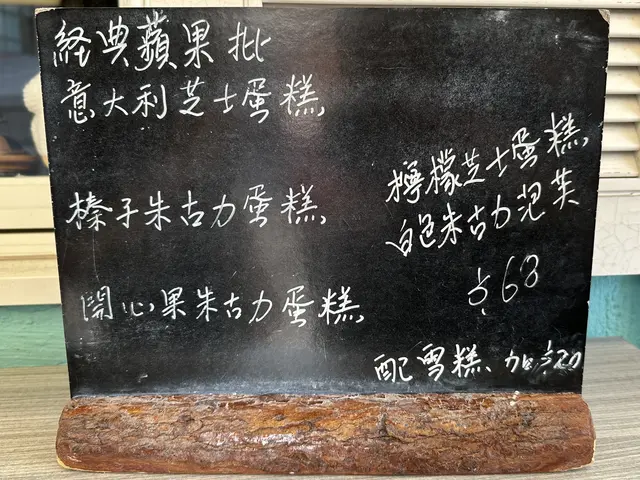 経典蘋果批
意大利芝士蛋糕
榛子朱古力蛋糕
開心果朱古力蛋糕
檸檬芝士蛋糕
白色朱古力泡芙
$68
配雪糕、加$20